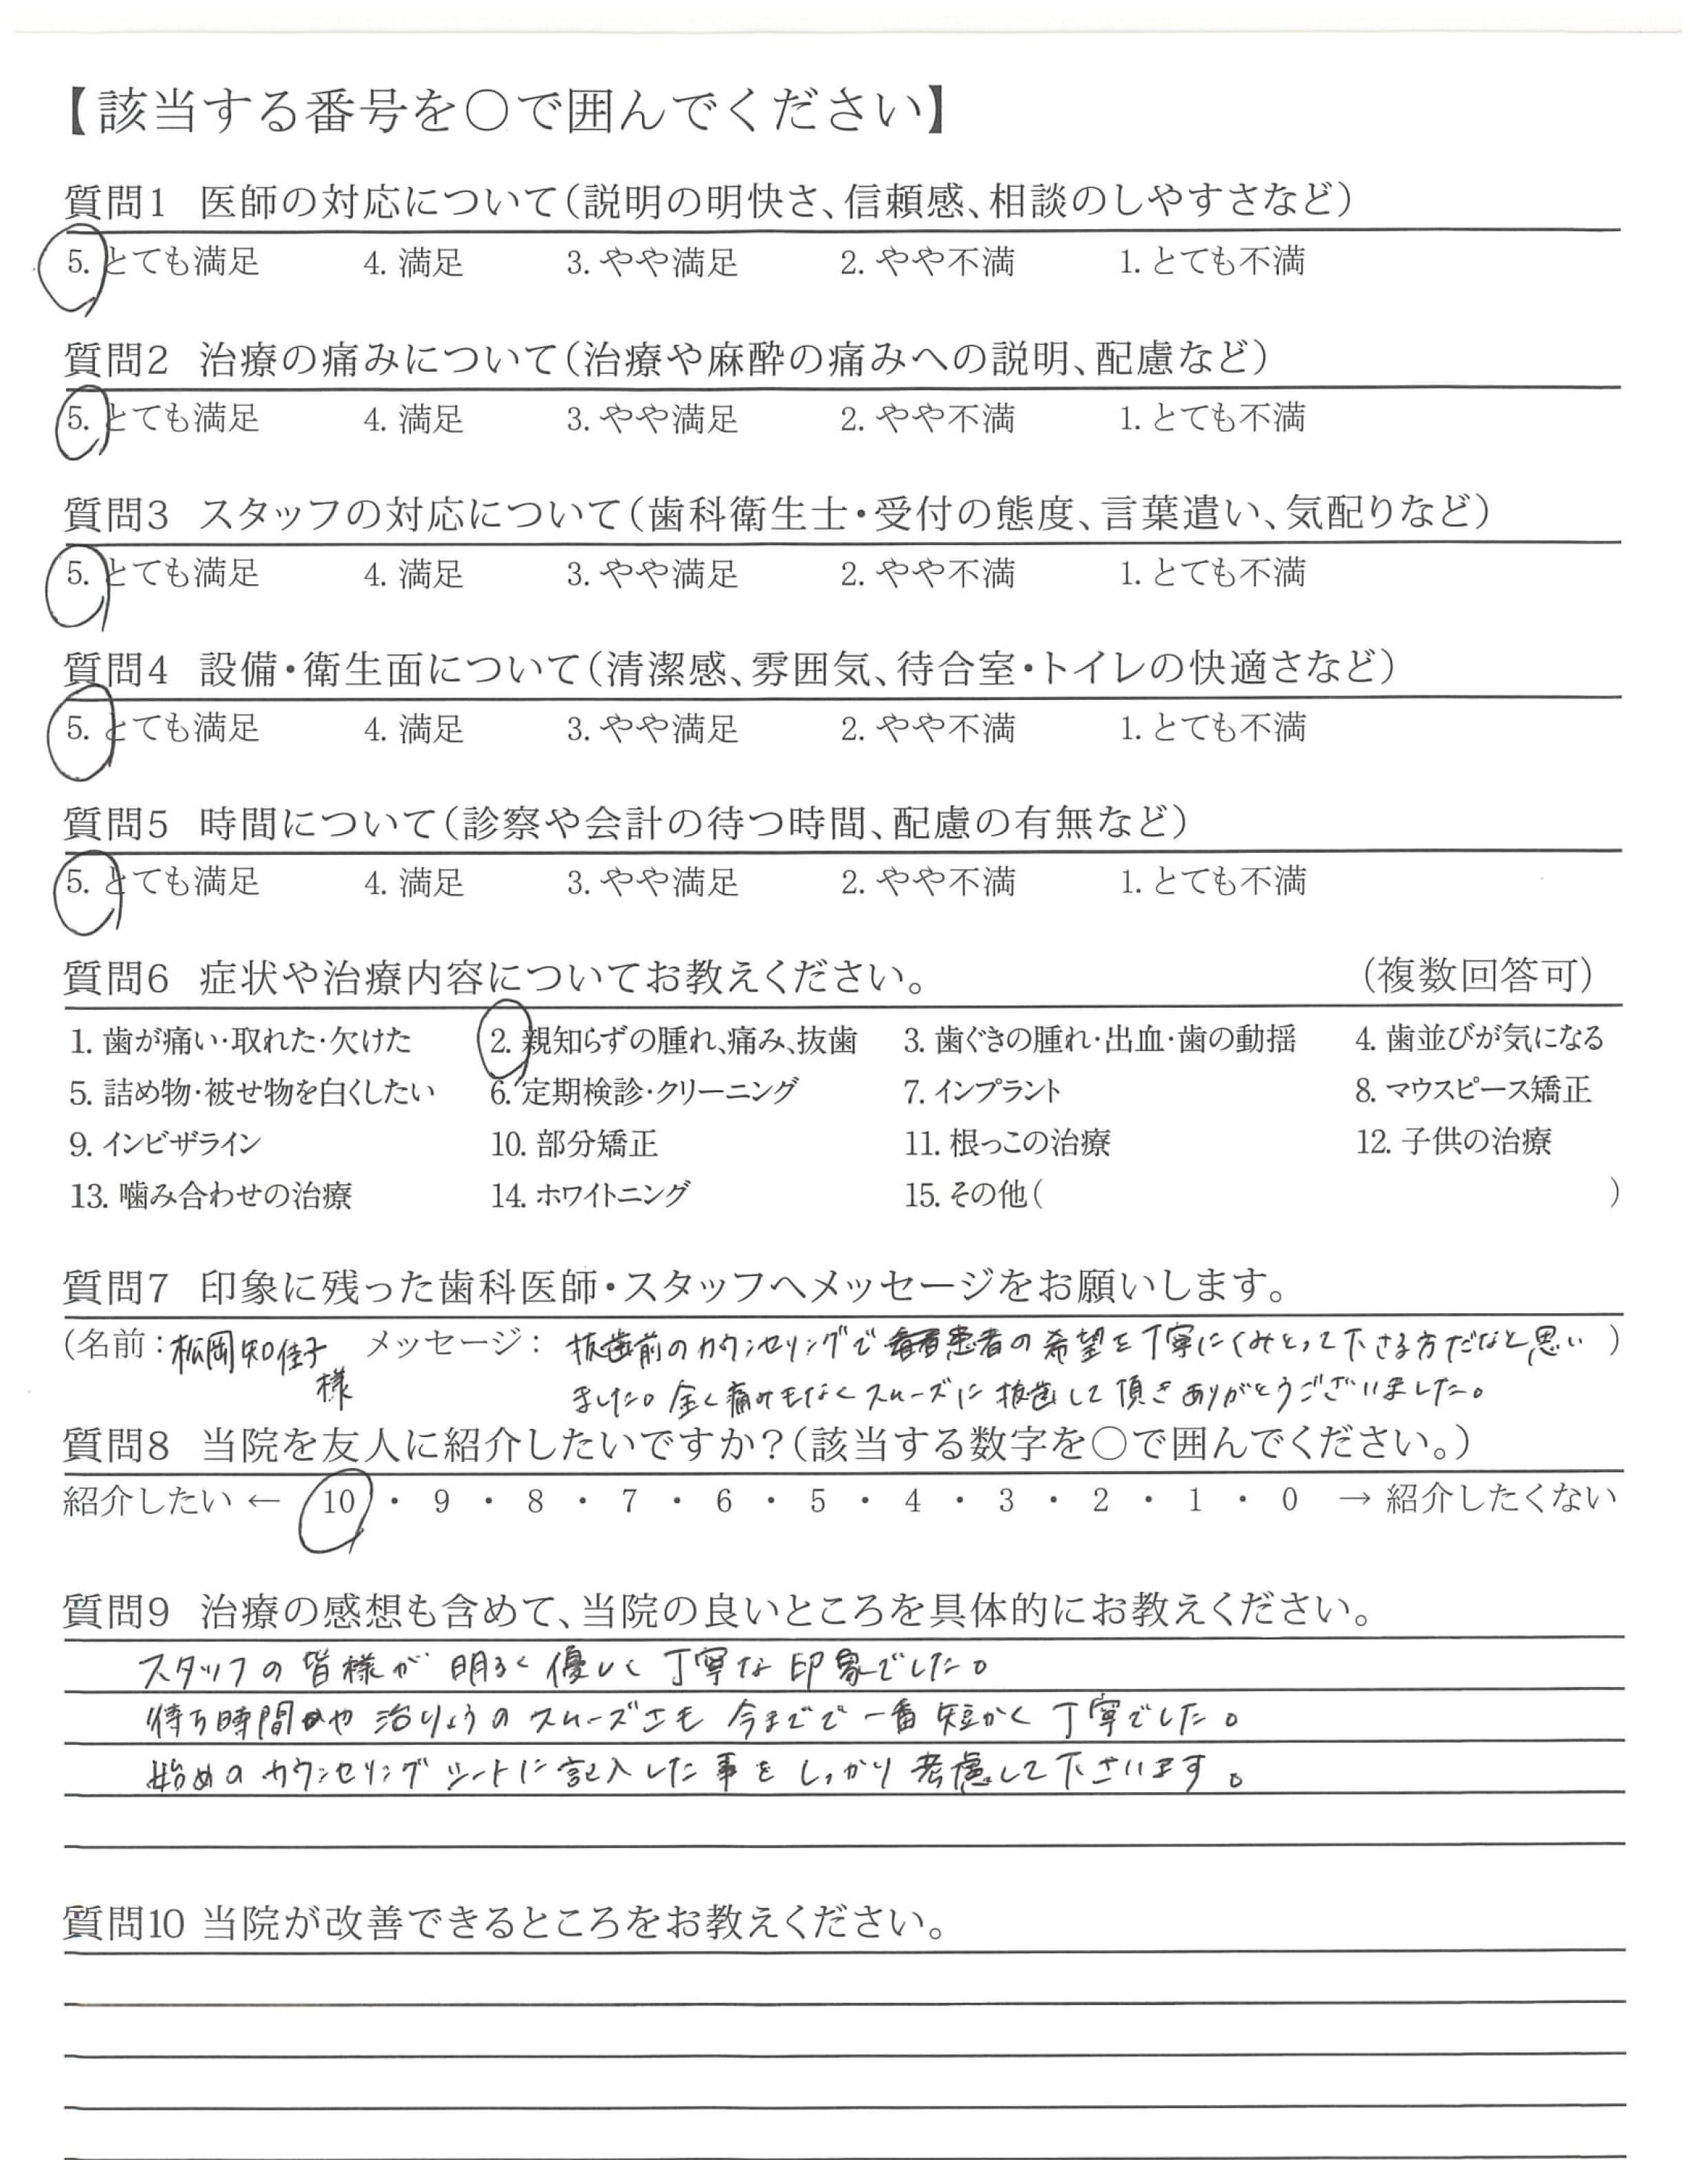 【該当する番号を〇で囲んでください】
質問1 医師の対応について(説明の明快さ、信頼感、相談のしやすさなど)
5. とても満足 4. 満足 3. やや満足 2. やや不満 1. とても不満
質問2 治療の痛みについて(治療や麻酔の痛みへの説明、配慮など)
5. とても満足 4. 満足 3. やや満足 2. やや不満 1. とても不満
質問3 スタッフの対応について(歯科衛生士・受付の態度、言葉遣い、気配りなど)
5. とても満足 4. 満足 3. やや満足 2. やや不満 1. とても不満
質問4 設備・衛生面について(清潔感、雰囲気、待合室・トイレの快適さなど)
5. とても満足 4. 満足 3. やや満足 2. やや不満 1. とても不満
質問5 時間について(診察や会計の待つ時間、配慮の有無など)
5. とても満足 4. 満足 3. やや満足 2. やや不満 1. とても不満
質問6 症状や治療内容についてお教えください。 (複数回答可)
1. 歯が痛い・取れた・欠けた 2. 親知らずの腫れ、痛み、抜歯 3. 歯ぐきの腫れ・出血・歯の動揺 4. 歯並びが気になる
5. 詰め物・被せ物を白くしたい 6. 定期検診・クリーニング 7. インプラント 8. マウスピース矯正
9. インビザライン 10. 部分矯正 11. 根っこの治療 12. 子供の治療
13. 噛み合わせの治療 14. ホワイトニング 15. その他( )
質問7 印象に残った歯科医師・スタッフへメッセージをお願いします。
(名前：松岡知佳子様 メッセージ： 抜歯前のカウンセリングで患者の希望を丁寧にくみとって下さる方だなと思い )
ました。全く痛みもなくスムーズに抜歯して頂きありがとうございました。
質問8 当院を友人に紹介したいですか？(該当する数字を〇で囲んでください。)
紹介したい ← 10 ・ 9 ・ 8 ・ 7 ・ 6 ・ 5 ・ 4 ・ 3 ・ 2 ・ 1 ・ 0 → 紹介したくない
質問9 治療の感想も含めて、当院の良いところを具体的にお教えください。
スタッフの皆様が明るく優しく丁寧な印象でした。
待ち時間や治りょうのスムーズさも今までで一番短かく丁寧でした。
始めのカウンセリングシートに記入した事をしっかり考慮して下さいます。
質問10 当院が改善できるところをお教えください。